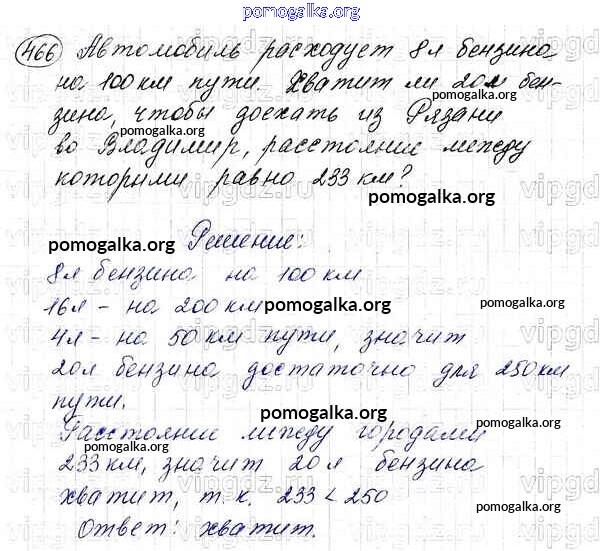 pomogalka.org
466 Автомобиль расходует 8л бензина
на 100 км пути. Хватит ли 20л бен-
зина, чтобы доехать из Рязани
pomogalka.org
во Владимир, расстояние между
pomogalka.org
которыми равно 233 км?
pomogalka.org
pomogalka.org
Решение:
pomogalka.org
8л бензина на 100 км
16л - на 200 км
pomogalka.org
pomogalka.org
4л - на 50 км пути, значит
20л бензина достаточно для 250 км
пути.
pomogalka.org
Расстояние между городами
pomogalka.org
233 км, значит 20 л бензина
хватит, т.к. 233 < 250
pomogalka.org
pomogalka.org
Ответ: хватит.